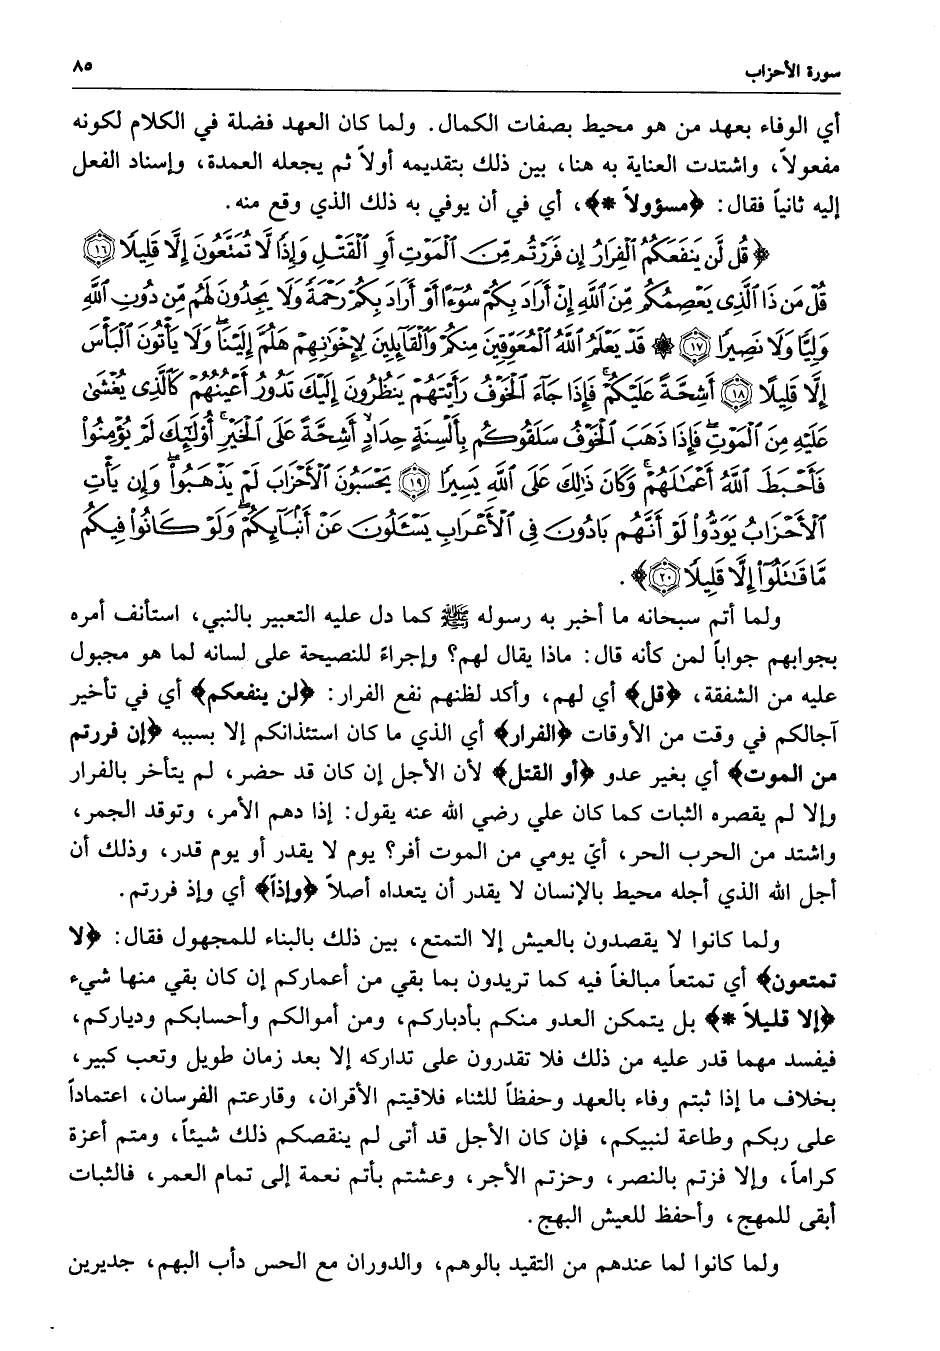 سورة الأحزاب ٨٥
أي الوفاء بعهد من هو محيط بصفات الكمال. ولما كان العهد فضلة في الكلام لكونه
مفعولاً، واشتدت العناية به هنا، بين ذلك بتقديمه أولاً ثم يجعله العمدة، وإسناد الفعل
إليه ثانياً فقال: ﴿مسؤولاً *﴾، أي في أن يوفي به ذلك الذي وقع منه.
﴿قُل لَّن يَنفَعَكُمُ ٱلْفِرَارُ إِن فَرَرْتُم مِّنَ ٱلْمَوْتِ أَوِ ٱلْقَتْلِ وَإِذًا لَّا تُمَتَّعُونَ إِلَّا قَلِيلًا ١٦
قُلْ مَن ذَا ٱلَّذِى يَعْصِمُكُم مِّنَ ٱللَّهِ إِنْ أَرَادَ بِكُمْ سُوٓءًا أَوْ أَرَادَ بِكُمْ رَحْمَةً وَلَا يَجِدُونَ لَهُم مِّن دُونِ ٱللَّهِ
وَلِيًّا وَلَا نَصِيرًا ١٧ ۞ قَدْ يَعْلَمُ ٱللَّهُ ٱلْمُعَوِّقِينَ مِنكُمْ وَٱلْقَآئِلِينَ لِإِخْوَٰنِهِمْ هَلُمَّ إِلَيْنَا ۖ وَلَا يَأْتُونَ ٱلْبَأْسَ
إِلَّا قَلِيلًا ١٨ أَشِحَّةً عَلَيْكُمْ ۖ فَإِذَا جَآءَ ٱلْخَوْفُ رَأَيْتَهُمْ يَنظُرُونَ إِلَيْكَ تَدُورُ أَعْيُنُهُمْ كَٱلَّذِى يُغْشَىٰ
عَلَيْهِ مِنَ ٱلْمَوْتِ ۖ فَإِذَا ذَهَبَ ٱلْخَوْفُ سَلَقُوكُم بِأَلْسِنَةٍ حِدَادٍ أَشِحَّةً عَلَى ٱلْخَيْرِ ۚ أُو۟لَٰٓئِكَ لَمْ يُؤْمِنُوا۟
فَأَحْبَطَ ٱللَّهُ أَعْمَٰلَهُمْ ۚ وَكَانَ ذَٰلِكَ عَلَى ٱللَّهِ يَسِيرًا ١٩ يَحْسَبُونَ ٱلْأَحْزَابَ لَمْ يَذْهَبُوا۟ ۖ وَإِن يَأْتِ
ٱلْأَحْزَابُ يَوَدُّوا۟ لَوْ أَنَّهُم بَادُونَ فِى ٱلْأَعْرَابِ يَسْـَٔلُونَ عَنْ أَنۢبَآئِكُمْ ۖ وَلَوْ كَانُوا۟ فِيكُم
مَّا قَٰتَلُوٓا۟ إِلَّا قَلِيلًا ٢٠﴾.
ولما أتم سبحانه ما أخبر به رسوله ﷺ كما دل عليه التعبير بالنبي، استأنف أمره
بجوابهم جواباً لمن كأنه قال: ماذا يقال لهم؟ وإجراءً للنصيحة على لسانه لما هو مجبول
عليه من الشفقة، ﴿قل﴾ أي لهم، وأكد لظنهم نفع الفرار: ﴿لن ينفعكم﴾ أي في تأخير
آجالكم في وقت من الأوقات ﴿الفرار﴾ أي الذي ما كان استئذانكم إلا بسببه ﴿إن فررتم
من الموت﴾ أي بغير عدو ﴿أو القتل﴾ لأن الأجل إن كان قد حضر، لم يتأخر بالفرار
وإلا لم يقصره الثبات كما كان علي رضي الله عنه يقول: إذا دهم الأمر، وتوقد الجمر،
واشتد من الحرب الحر، أيّ يومي من الموت أفر؟ يوم لا يقدر أو يوم قدر، وذلك أن
أجل الله الذي أجله محيط بالإنسان لا يقدر أن يتعداه أصلاً ﴿وإذاً﴾ أي وإذ فررتم.
ولما كانوا لا يقصدون بالعيش إلا التمتع، بين ذلك بالبناء للمجهول فقال: ﴿لا
تمتعون﴾ أي تمتعاً مبالغاً فيه كما تريدون بما بقي من أعماركم إن كان بقي منها شيء
﴿إلا قليلاً *﴾ بل يتمكن العدو منكم بأدباركم، ومن أموالكم وأحسابكم ودياركم،
فيفسد مهما قدر عليه من ذلك فلا تقدرون على تداركه إلا بعد زمان طويل وتعب كبير،
بخلاف ما إذا ثبتم وفاء بالعهد وحفظاً للثناء فلاقيتم الأقران، وقارعتم الفرسان، اعتماداً
على ربكم وطاعة لنبيكم، فإن كان الأجل قد أتى لم ينقصكم ذلك شيئاً، ومتم أعزة
كراماً، وإلا فزتم بالنصر، وحزتم الأجر، وعشتم بأتم نعمة إلى تمام العمر، فالثبات
أبقى للمهج، وأحفظ للعيش البهج.
ولما كانوا لما عندهم من التقيد بالوهم، والدوران مع الحس دأب البهم، جديرين